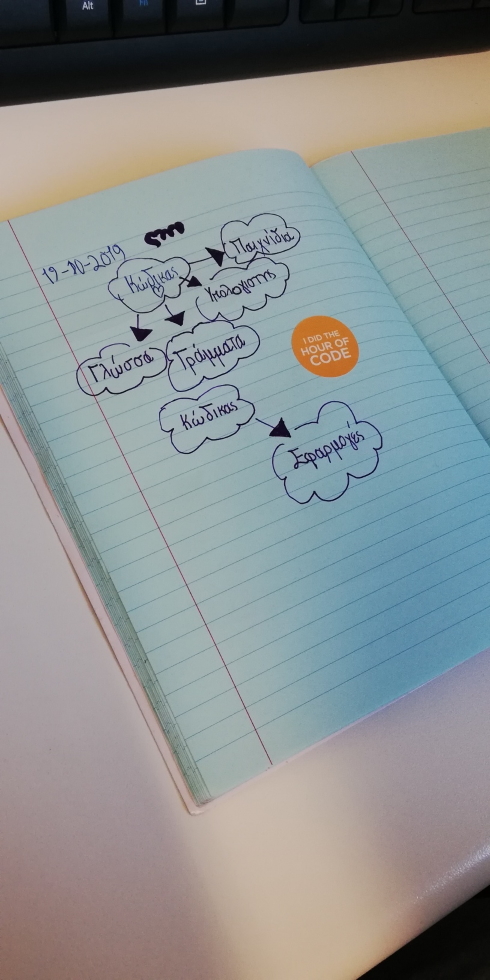 Alt
Fn
19-10-2019
Κώδικας
Παιχνίδια
Υπολογιστής
Γλώσσα
Γράμματα
I DID THE
HOUR OF
CODE
Κώδικας
Εφαρμογές